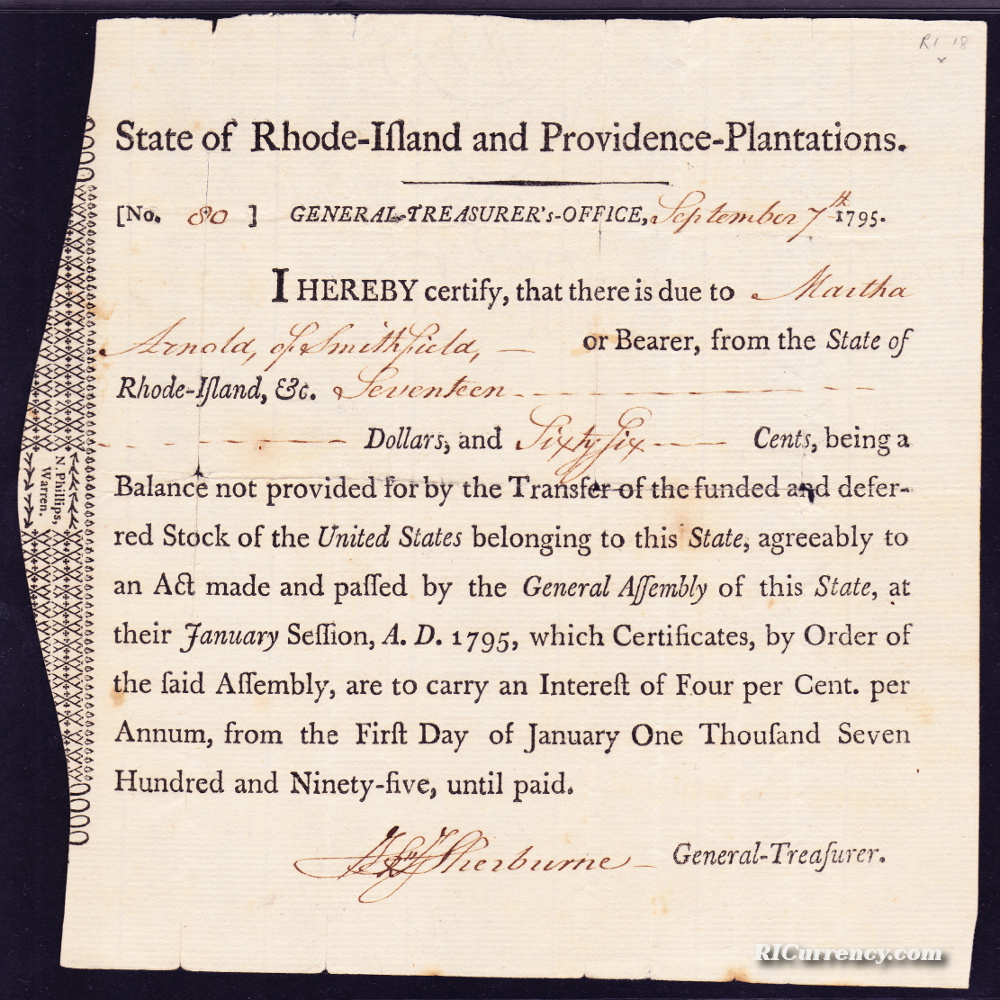 R1 18
x
State of Rhode-Iſland and Providence-Plantations.
[No. 80 ] GENERAL-TREASURER's-OFFICE, September 7th 1795.
I HEREBY certify, that there is due to Martha
Arnold, of Smithfield, — or Bearer, from the State of
Rhode-Iſland, &c. Seventeen
Dollars, and Sixty Six Cents, being a
Balance not provided for by the Transfer of the funded and defer-
red Stock of the United States belonging to this State, agreeably to
an Act made and paſſed by the General Aſſembly of this State, at
their January Seſſion, A. D. 1795, which Certificates, by Order of
the ſaid Aſſembly, are to carry an Intereſt of Four per Cent. per
Annum, from the Firſt Day of January One Thouſand Seven
Hundred and Ninety-five, until paid.
Sherburne — General-Treaſurer.
N. Phillips,
Warren.
RICurrency.com